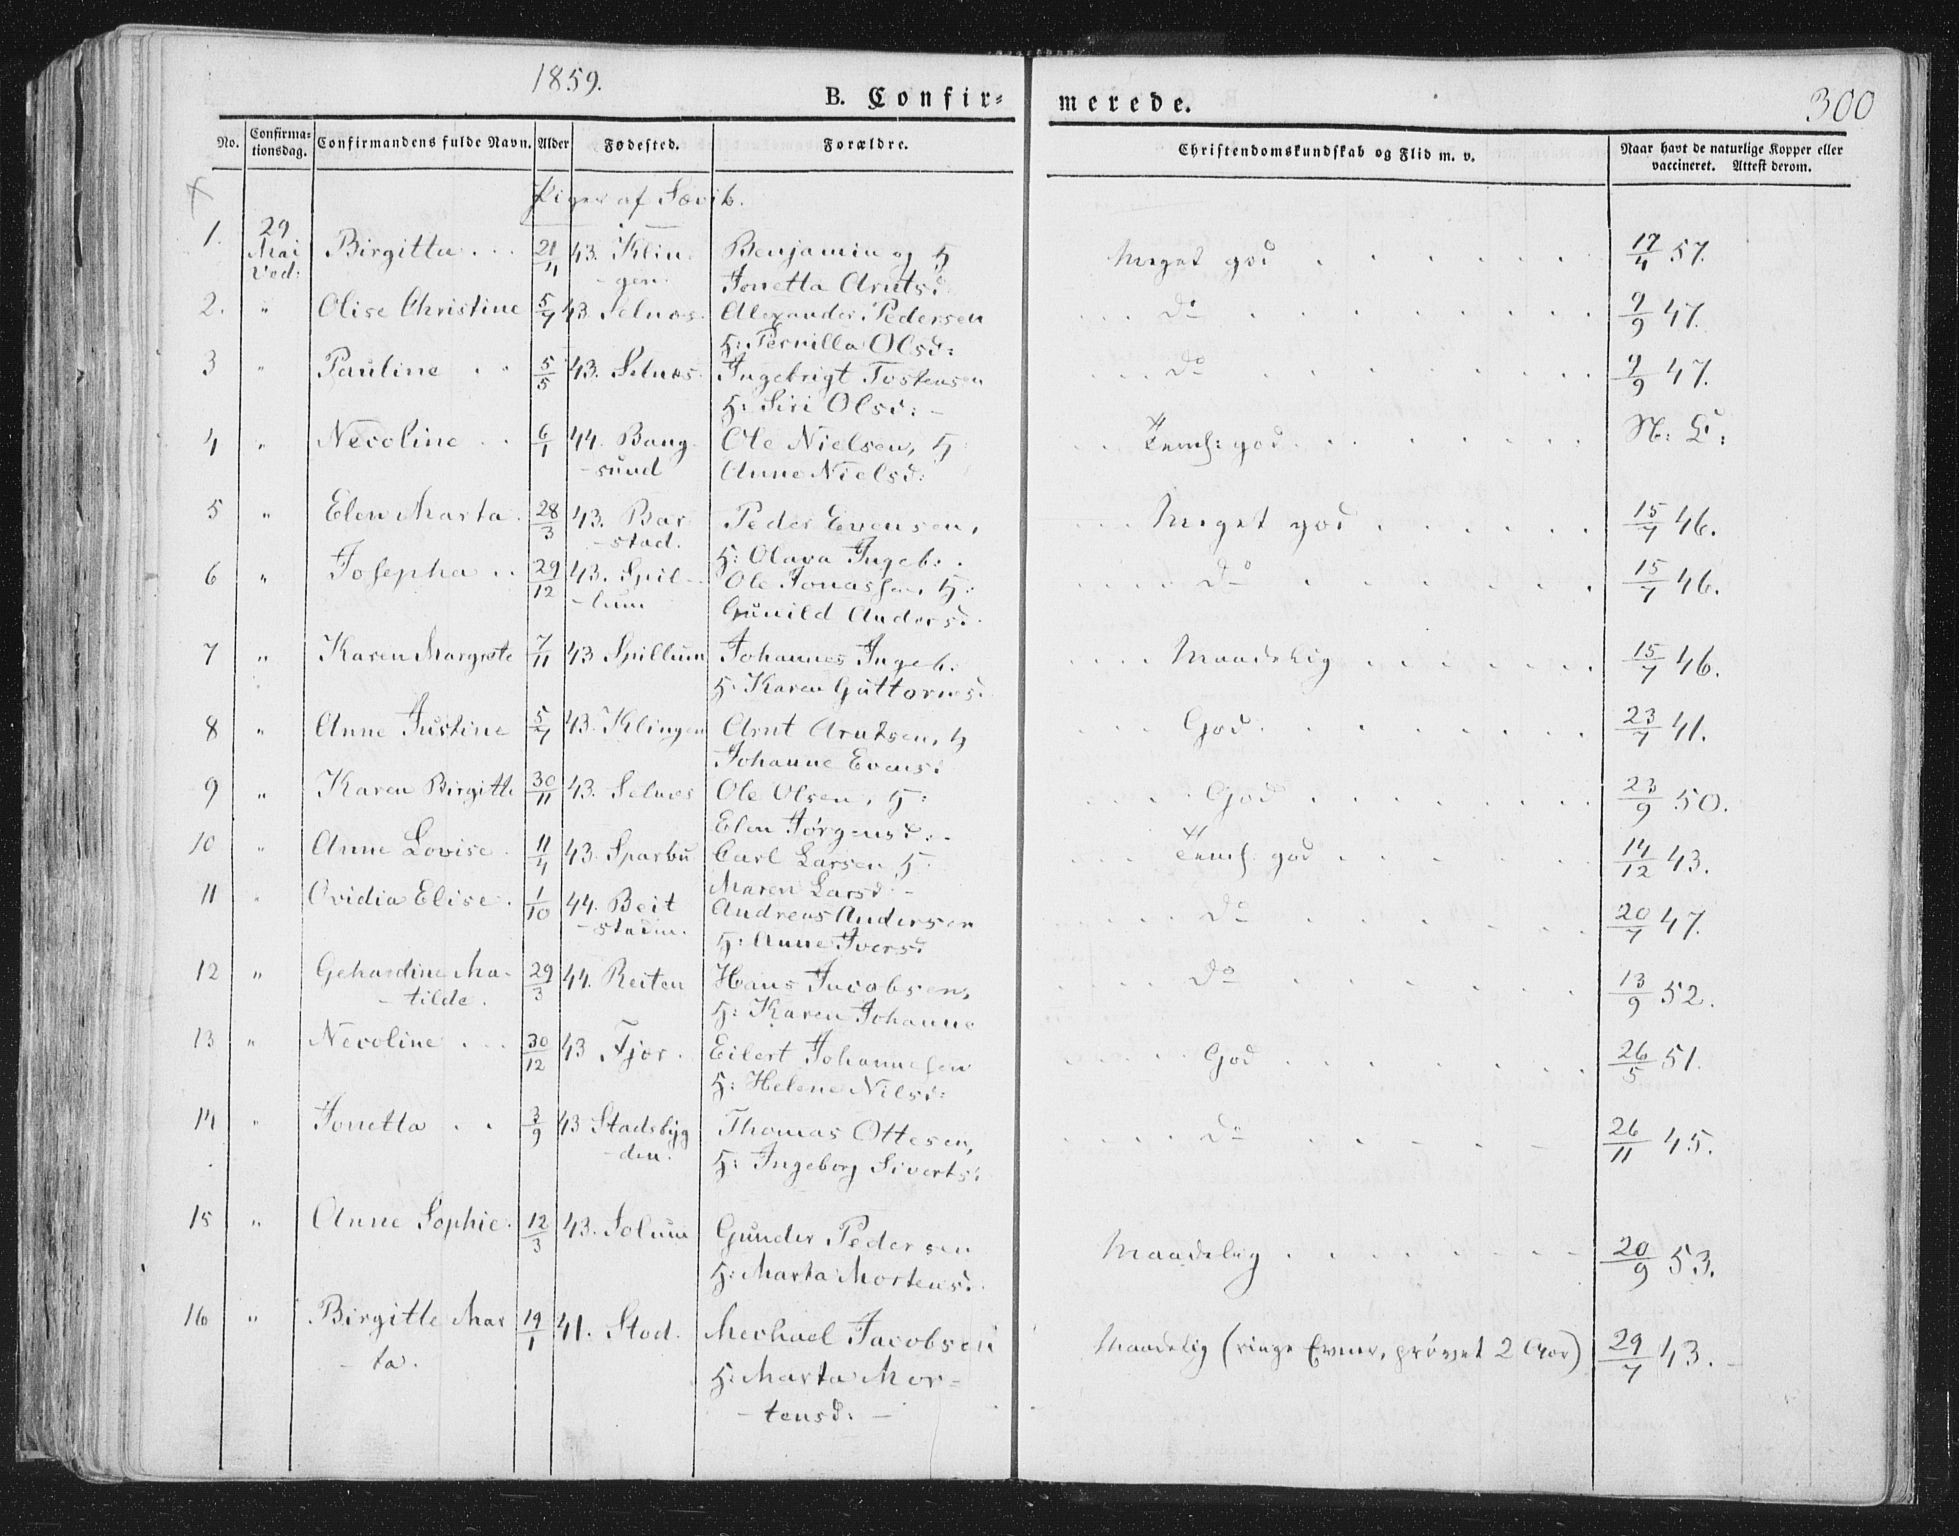 1859.
B. Confir-
merede.
300
No.
Confirma-
tionsdag.
Confirmandens fulde Navn.
Alder
Fødested.
Forældre.
Christendomskundskab og Flid m. v.
Naar havt de naturlige Kopper eller
vaccineret. Attest derom.
Piger af Sævik.
1. 29 Birgitta . . . 21/4 43. Klin- Benjamin og H Meget god . . . . . . 17/4 57.
Mai
Ved: -gen. Jonetta Arntsd.
2. " Olise Christine 5/7 43. Selnæs. Alexander Pedersen . . . Do . . . . . . 9/9 47.
H: Pernilla Olsd:
3 " Pauline . . 5/5 43. Selnæs. Ingebrigt Tostensen . . . Do . . . . . . 9/9 47.
H: Siri Olsd: -
4 " Necoline . . 6/1 44. Bang- Ole Nielsen, H . . Temf: god . . . . . . N: L:
-sund Anne Nielsd:
5 " Elen Marta . 28/3 43. Bar Peder Evensen, . . . Meget god . . . . . 15/7 46.
-stad. H: Olava Ingeb: .
6 " Josepha . . 29/12 43. Spil- Ole Jonassen, H: . . . . Do . . . . . . 15/7 46.
-lum Gunild Andersd.
7 " Karen Margrete 7/11 43 Spillum Johannes Ingeb. . . . . Maadelig . . . . . . 15/7 46.
H: Karen Guttormsd.
8 " Anne Justine 5/7 43. Klingen Arnt Arntsen, H . . God . . . . . . . 23/7 41.
Johanne Evensd
9 " Karen Birgitte 30/11 43. Selnæs Ole Olsen, H: . . . . God . . . . . . . 23/9 50.
Elen Jørgensd: -
10 " Anne Lovise . 11/4 43. Sparbu Carl Larsen H: . . . Temf. god . . . . . . 14/12 43.
Maren Larsd -
11 " Ovidia Elise . 1/10 44. Beit Andreas Andersen . . . . Do . . . . . . 20/7 47.
-staden. H: Anne Iversd
12 " Gehardine Ma- 29/3 44. Reiten Hans Jacobsen, . . . . Do . . . . . . 13/9 52.
-tilde. H: Karen Johanne
13 " Necoline . . . 30/12 43 Fjær . Eilert Johannesen . . . . . God . . . . . . . 26/5 51.
H: Helene Nilsd:
14 " Jonetta . . 3/9 43 Stadsbyg Thomas Ottesen, . . . . Do . . . - - - 26/11 45.
-den. H: Ingeborg Sivertsd:
15 " Anne Sophie. 12/3 43. Solum Gunder Pedersen Maadelig . . . . . . . - 20/9 53.
H: Marta Mortensd.
16 " Birgitte Mar 19/1 41. Stod. Mechael Jacobsen Maadelig (ringe Evner, prøvet 2 Aar) 29/7 43. -
-ta. H: Marta Mor-
-tensd: -